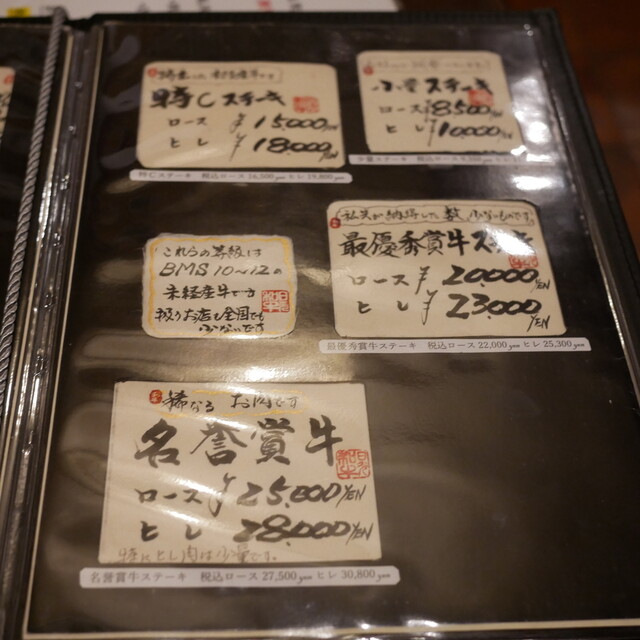 特Cステーキ
ロース ¥15,000YEN
ヒレ ¥18,000YEN
特Cステーキ 税込ロース 16,500yen ヒレ 19,800yen
小量ステーキ
ロース ¥8500YEN
ヒレ ¥10000YEN
これらの等級は
BMS10~12の
未経産牛です
扱うお店も全国でも
少ないです
私共が納得した数少ないものです
最優秀賞牛ステーキ
ロース ¥20,000YEN
ヒレ ¥23,000YEN
最優秀賞牛ステーキ 税込ロース 22,000yen ヒレ 25,300yen
稀なる お肉です
名誉賞牛
ロース ¥25,000YEN
ヒレ 28,000YEN
特にヒレ肉は少量です。
名誉賞牛ステーキ 税込ロース 27,500yen ヒレ 30,800yen